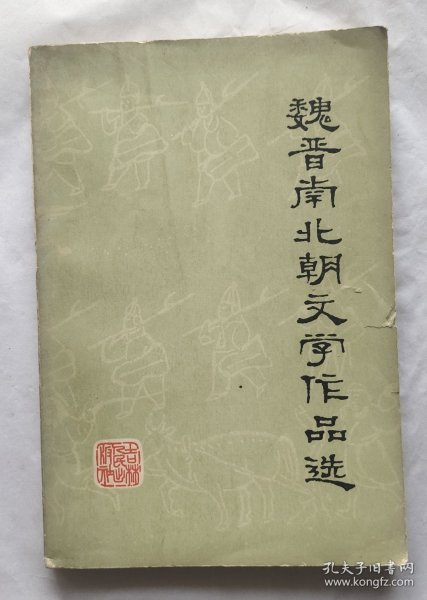 魏晋南北朝文学作品选
吉林
人民出
版社
孔夫子旧书网
www.kongfz.com